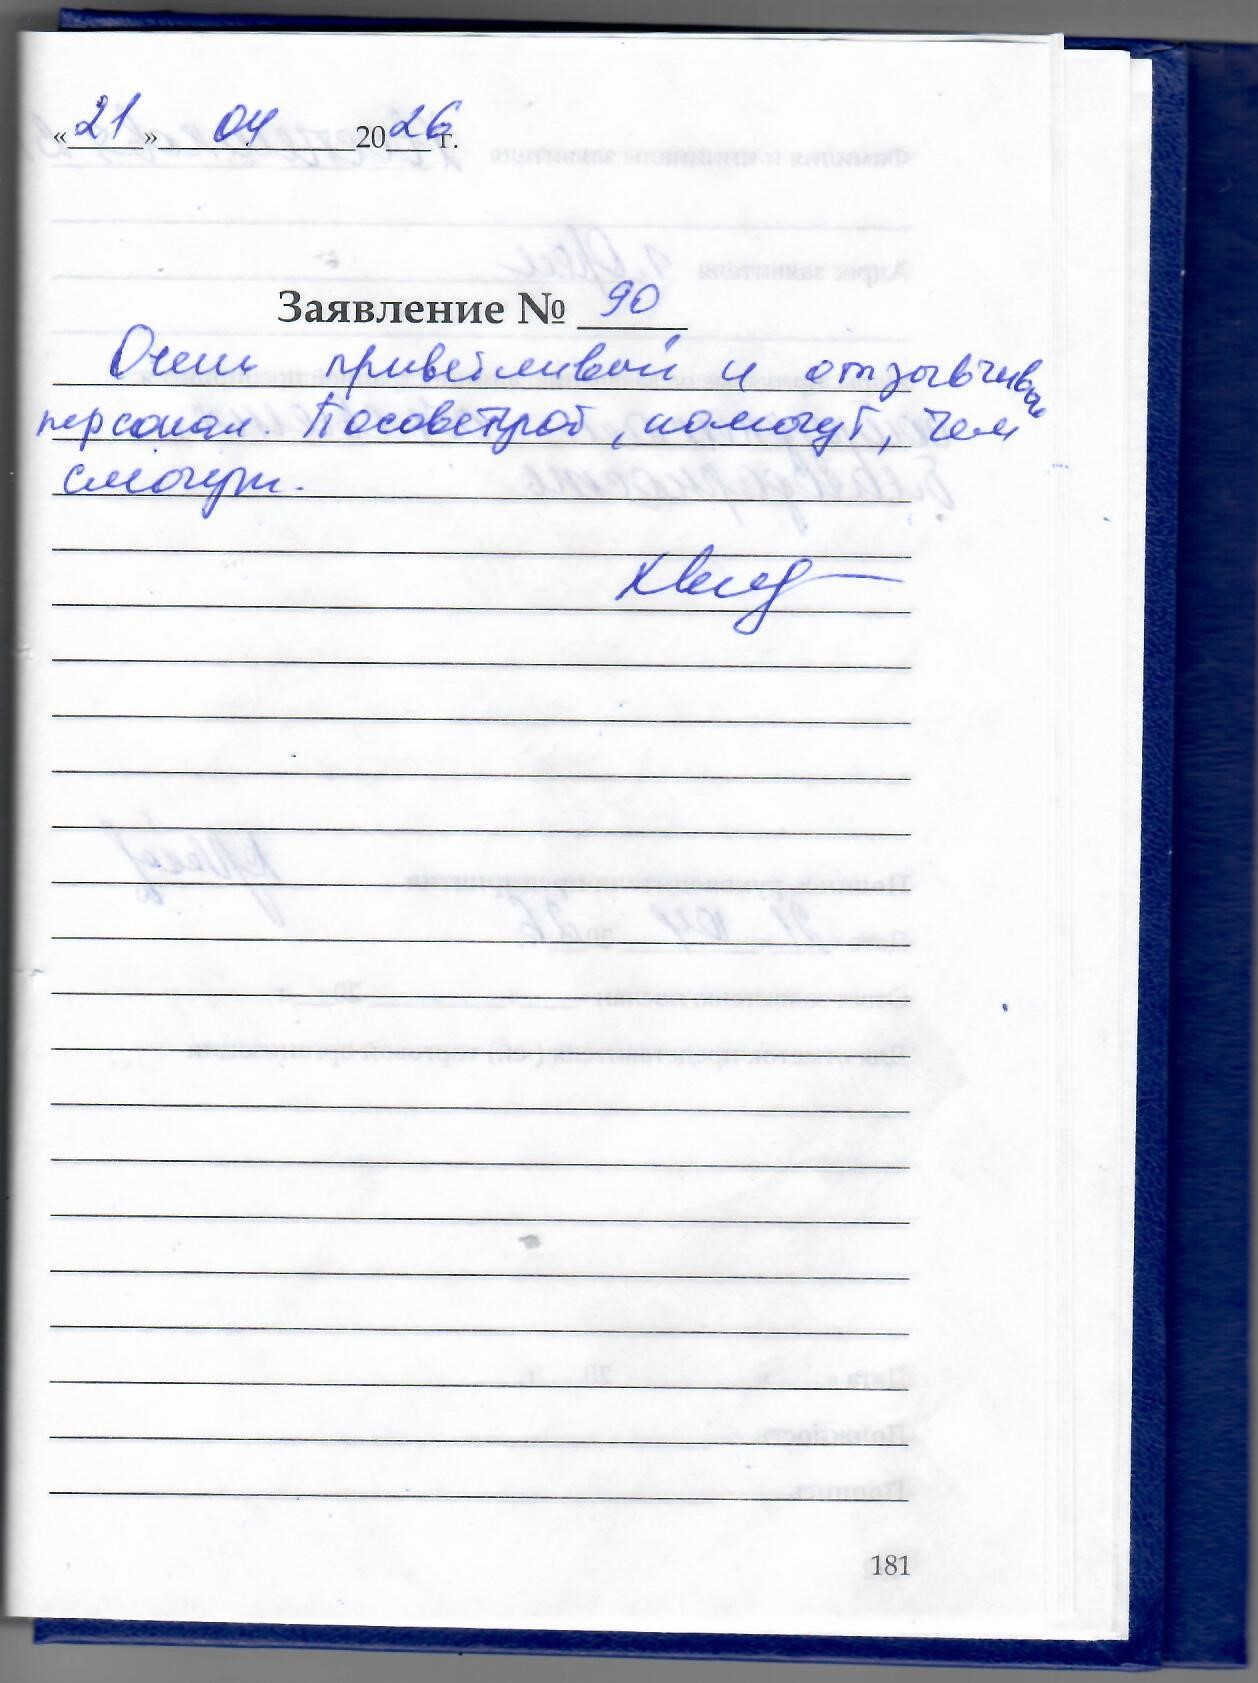 «21» 04 2026 г.
Заявление № 90
Очень приветливый и отзывчивый
персонал. Посоветуют, помогут, чем
смогут.
181